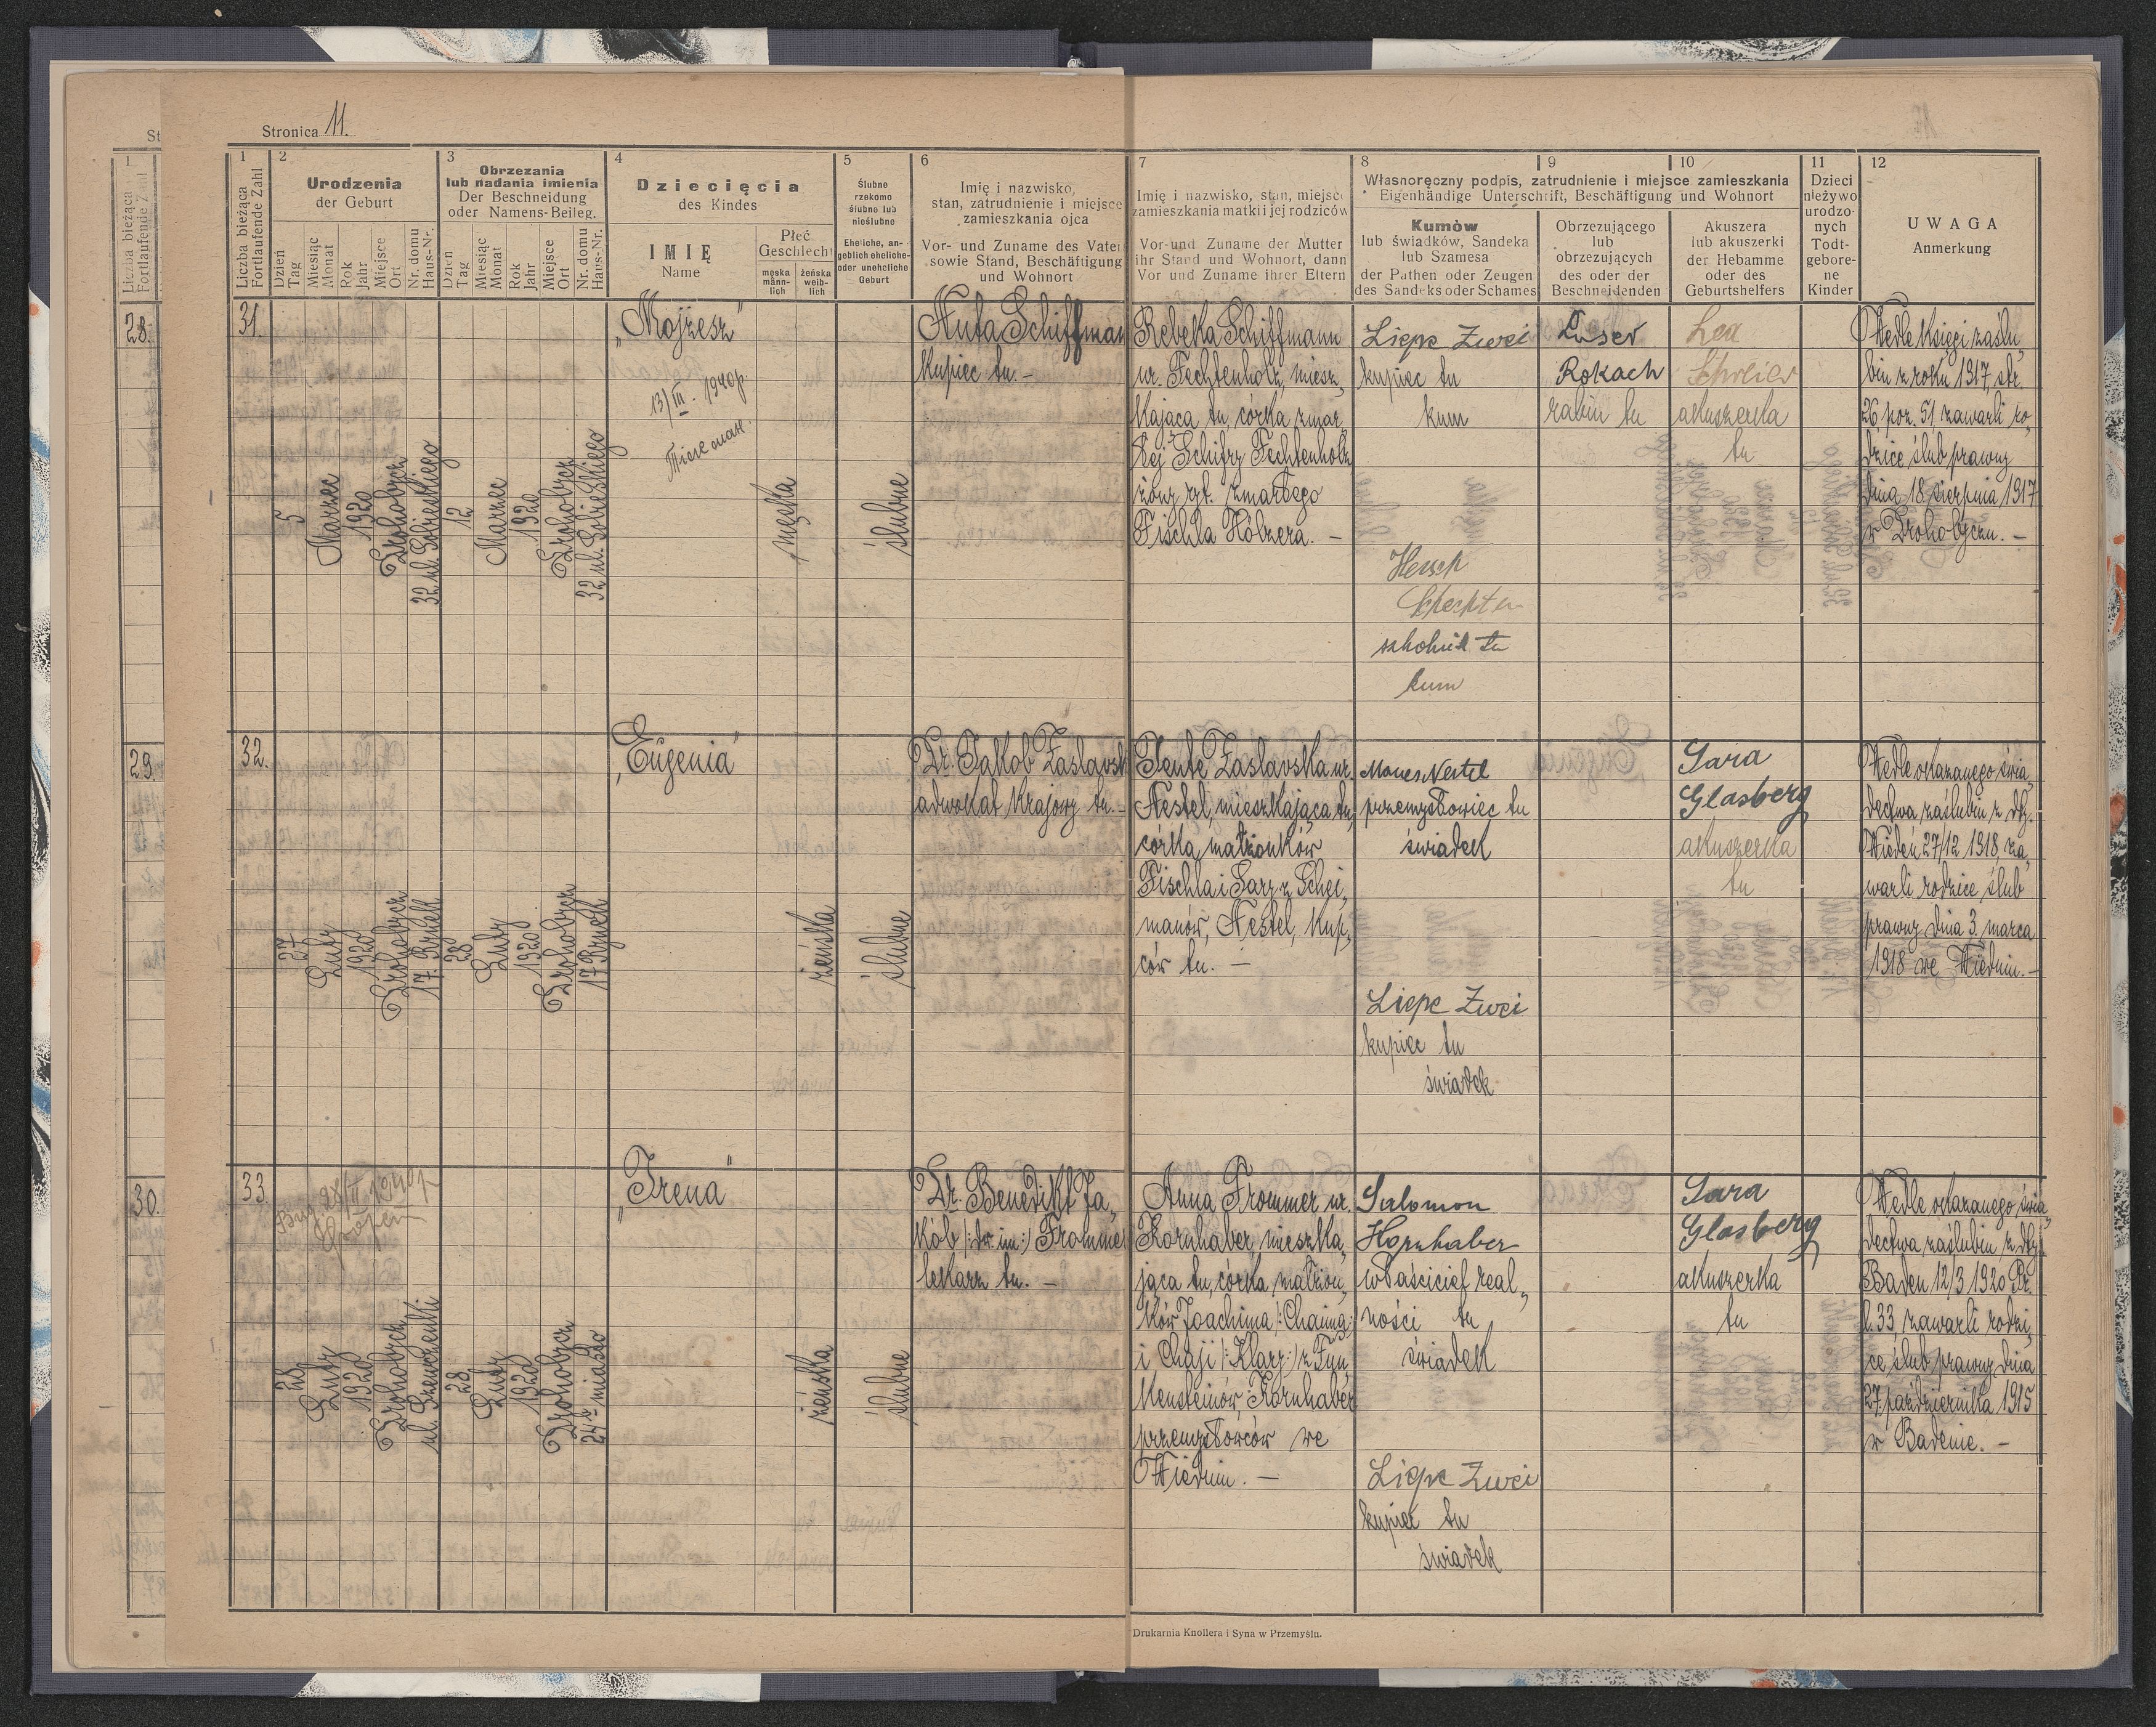 Stronica 11.
1
Liczba bieżąca
Fortlaufende Zahl
2
Urodzenia
der Geburt
Dzień
Tag
Miesiąc
Monat
Rok
Jahr
Miejsce
Ort
Nr. domu
Haus-Nr.
3
Obrzezania
lub nadania imienia
Der Beschneidung
oder Namens-Beileg.
Dzień
Tag
Miesiąc
Monat
Rok
Jahr
Miejsce
Ort
Nr. domu
Haus-Nr.
4
Dziecięcia
des Kindes
IMIĘ
Name
Płeć
Geschlecht
męska
männ-
lich
żeńska
weib-
lich
5
Ślubne
rzekomo
ślubne lub
nieślubne
Eheliche, an-
geblich eheliche-
oder uneheliche
Geburt
6
Imię i nazwisko,
stan, zatrudnienie i miejsce
zamieszkania ojca
Vor- und Zuname des Vaters
sowie Stand, Beschäftigung
und Wohnort
7
Imię i nazwisko, stan, miejsce
zamieszkania matki i jej rodziców
Vor-und Zuname der Mutter
ihr Stand und Wohnort, dann
Vor und Zuname ihrer Eltern
Własnoręczny podpis, zatrudnienie i miejsce zamieszkania
Eigenhändige Unterschrift, Beschäftigung und Wohnort
8
Kumów
lub świadków, Sandeka
lub Szamesa
der Pathen oder Zeugen
des Sandeks oder Schames
9
Obrzezującego
lub
obrzezujących
des oder der
Beschneidenden
10
Akuszera
lub akuszerki
der Hebamme
oder des
Geburtshelfers
11
Dzieci
nieżywo
urodzo-
nych
Todt-
gebore-
ne
Kinder
12
UWAGA
Anmerkung
31.
5
Marzec
1920
Drohobycz
32 ul. Sobieskiego
12
Marzec
1920
Drohobycz
32 ul. Sobieskiego
„Mojżesz"
13/III. 1940 p.
męska
ślubne
Nuta Schiffman
kupiec tu. -
Rebeka Schiffmann
ur. Fechtenholz, miesz„
kająca tu, córka zmar„
łej Schifry Fechtenholz
żony ryt. zmarłego
Fischla Hölzera. -
Liepe Zwei
kupiec tu
kum
Hersch
Schechter
szkolnik tu
kum
Luser
Rokach
rabin tu
Lea
Schreier
akuszerka
tu
Wedle księgi zaślu„
bin z roku 1917, str.
26 poz. 51 zawarli ro„
dzice ślub prawny
dnia 18 sierpnia 1917
w Drohobyczu. -
32.
27
Luty
1920
Drohobycz
17. Rynek
28
Luty
1920
Drohobycz
17 Rynek
„Eugenia"
żeńska
ślubne
Dr. Jakob Zasławsk
adwokat krajowy tu. -
Tente Zasławska ur.
Nestel, mieszkająca tu,
córka małżonków
Fischla i Sary z Schei„
manów, Nestel, kup„
ców tu. -
Moses Nestel
przemysłowiec tu
świadek
Liepe Zwei
kupiec tu
świadek
Sara
Glasberg
akuszerka
tu
Wedle okazanego świa„
dectwa zaślubin z dty.
Wiedeń 27/12 1918, za„
warli rodzice ślub
prawny dnia 3. marca
1918 we Wiedniu. -
33
28/II 1940 p
28
Luty
1920
Drohobycz
ul. Szewczenki
28
Luty
1920
Drohobycz
24 miasto
„Irena"
żeńska
ślubne
Dr. Benedikt Ja„
kób /: dw. im :/ Frommer
lekarz tu. -
Anna Frommer ur.
Kornhaber, mieszka„
jąca tu, córka małżon„
ków Joachima /: Chaima :/
i Chaji /: Klary :/ z Fun„
kensteinów, Kornhaber
przemysłowców we
Wiedniu. -
Salomon
Hornhaber
właściciel real„
ności tu
świadek
Liepe Zwei
kupiec tu
świadek
Sara
Glasberg
akuszerka
tu
Wedle okazanego świa„
dectwa zaślubin z dty.
Baden 12/3 1920 Pr.
l. 33, zawarli rodzi„
ce ślub prawny dnia
27 października 1915
w Badenie. -
Drukarnia Knollera i Syna w Przemyślu.
28.
29.
30.